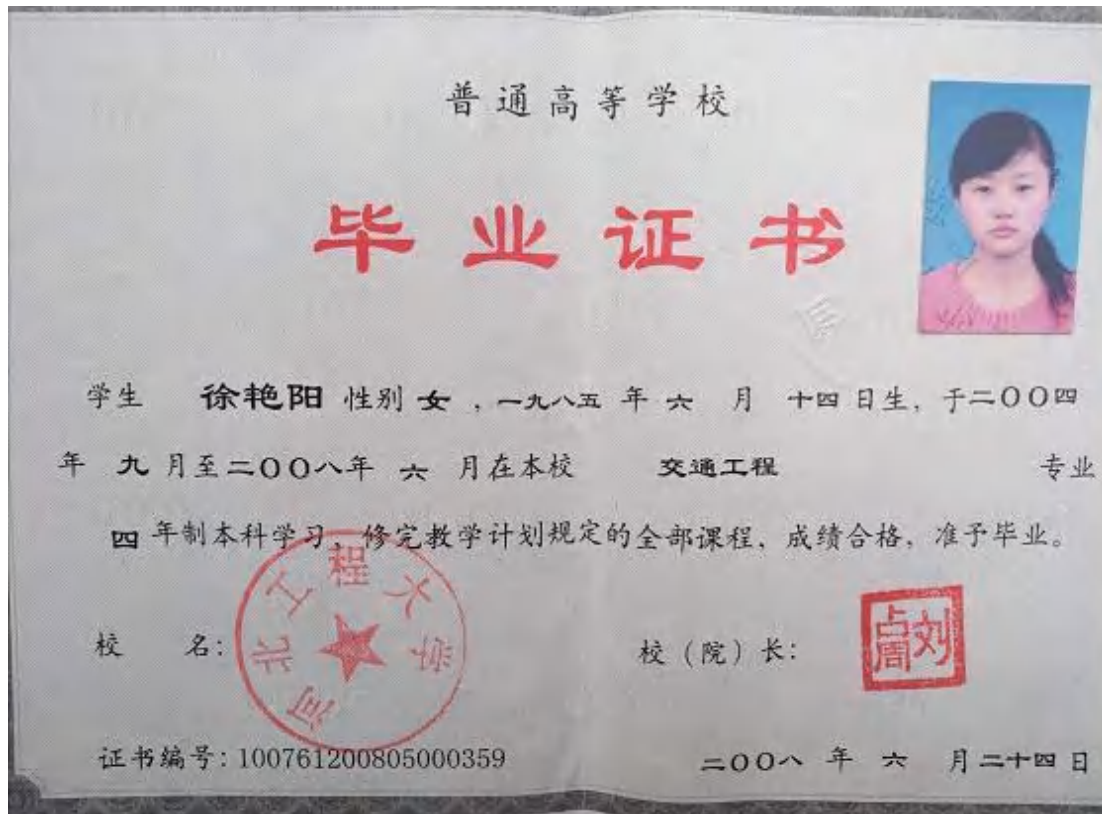 普通高等学校
毕业证书
学生 徐艳阳 性别 女 ，一九八五 年 六 月 十四 日生，于二〇〇四
年 九 月至二〇〇八年 六 月在本校 交通工程 专业
四 年制本科学习，修完教学计划规定的全部课程，成绩合格，准予毕业。
河北工程大学
校 名：
校（院）长：
证书编号：100761200805000359
二〇〇八 年 六 月二十四日